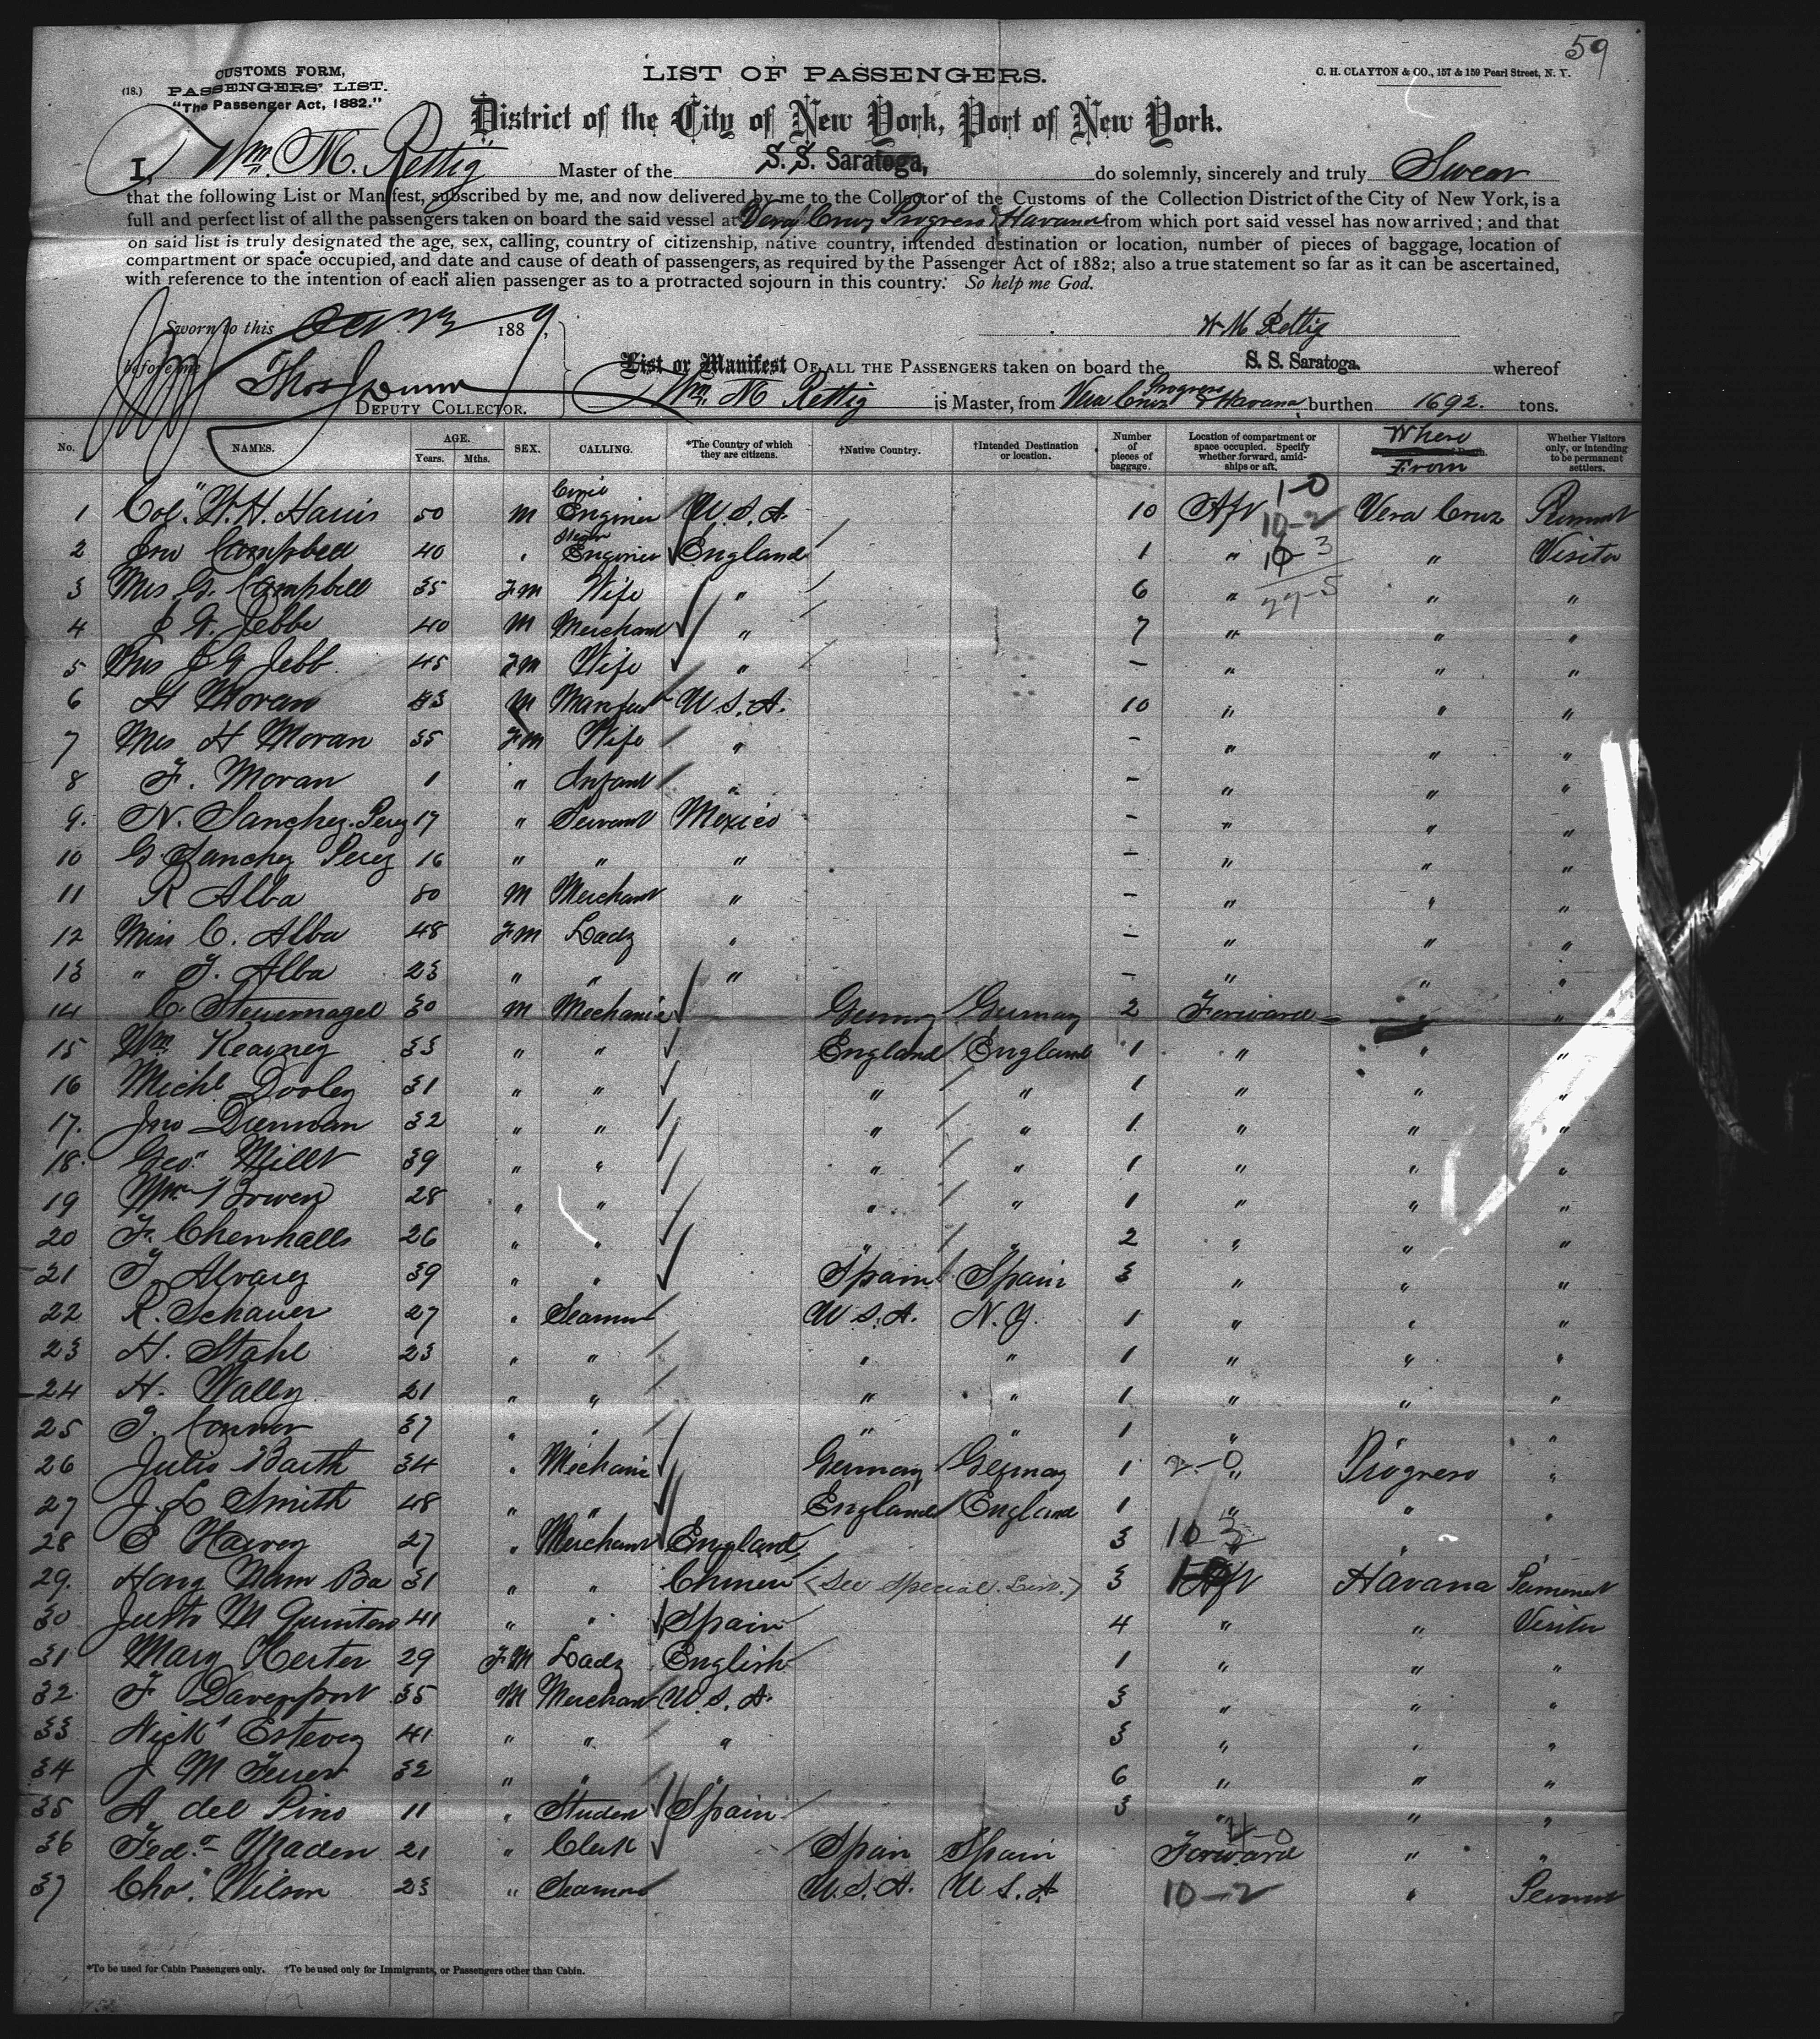 59
CUSTOMS FORM,
(18.) PASSENGERS' LIST.
"The Passenger Act, 1882."
LIST OF PASSENGERS.
C. H. CLAYTON & CO., 157 & 159 Pearl Street, N. Y.
District of the City of New York, Port of New York.
I, Wm. M. Rettig Master of the S. S. Saratoga, do solemnly, sincerely and truly Swear
that the following List or Manifest, subscribed by me, and now delivered by me to the Collector of the Customs of the Collection District of the City of New York, is a
full and perfect list of all the passengers taken on board the said vessel at Vera Cruz Progreso & Havana from which port said vessel has now arrived; and that
on said list is truly designated the age, sex, calling, country of citizenship, native country, intended destination or location, number of pieces of baggage, location of
compartment or space occupied, and date and cause of death of passengers, as required by the Passenger Act of 1882; also a true statement so far as it can be ascertained,
with reference to the intention of each alien passenger as to a protracted sojourn in this country. So help me God.
Sworn to this Oct. 23 1889,
W M Rettig
before me Thos Dunn
DEPUTY COLLECTOR.
List or Manifest OF ALL THE PASSENGERS taken on board the S. S. Saratoga. whereof
Wm. M Rettig is Master, from Vera Cruz Progreso & Havana, burthen 1692. tons.
No. NAMES. AGE. Years. Mths. SEX. CALLING. *The Country of which they are citizens. †Native Country. †Intended Destination or location. Number of pieces of baggage. Location of compartment or space occupied. Specify whether forward, amidships or aft. Where From Whether Visitors only, or intending to be permanent settlers.
1 Col. W. H. Harris 50 M Civil Engineer U. S. A. 10 Aft 1-0 10-2 Vera Cruz
2 Jno Campbell 40 " Engineer England 1 " " Visitor
3 Mrs G. Campbell 35 FM Wife " 6 " 27-5 " "
4 J G. Jebb 40 M Merchant " 7 " " "
5 Mrs J G Jebb 45 FM Wife " - " " "
6 H Moran 43 M U. S. A. 10 " " "
7 Mrs H Moran 35 FM Wife " - " " "
8 F. Moran 1 " Infant " - " " "
9. N. Sanchez Perez 17 " Servant Mexico - " " "
10 G Sanchez Perez 16 " " " - " " "
11 R Alba 80 M Merchant " - " " "
12 Miss C. Alba 48 FM Lady " - " " "
13 " T. Alba 23 " " " - " " "
14 C. Steuernagel 30 M Mechanic Germy Germay 2 Forward " "
15 Wm Kearney 33 " " England England 1 " " "
16 Michl Dooley 31 " " " " 1 " " "
17. Jno Drennan 32 " " " " 1 " " "
18. Geo. Millt 39 " " " " 1 " " "
19 Wm Bowen 28 " " " " 1 " " "
20 F. Chenhalls 26 " " " " 2 " " "
21 T. Alvarez 39 " " Spain Spain 3 " " "
22 R. Schauer 27 " Seaman U S. A. N. Y. 1 " " "
23 H. Stahl 23 " " " " 1 " " "
24 H. Wally 21 " " " " 1 " " "
25 T. Connor 37 " " " " 1 " " "
26 Julio Barth 34 " Mechanic Germay Germay 1 2-0 " Progreso "
27 J. L Smith 48 " " England England 1 " " "
28 E Harvey 27 " Merchant England 3 10 3 " "
29. Hong Nam Ba 31 " " Chinese (See Special List.) 3 Aft Havana
30 Justo M Quintero 41 " " Spain 4 " " Visitor
31 Mary Herter 29 FM Lady English 1 " " "
32 F Davenport 35 M Merchant U. S. A. 3 " " "
33 Nick Estevez 41 " " " 3 " " "
34 J M Ferrer 32 " " " 6 " " "
35 A del Pino 11 " Student Spain 3 " " "
36 Fedo Maden 21 " Clerk Spain Spain 4-0 Forward " "
37 Chas. Wilson 23 " Seaman U. S. A. U. S. A 10-2 "
*To be used for Cabin Passengers only. †To be used only for Immigrants, or Passengers other than Cabin.